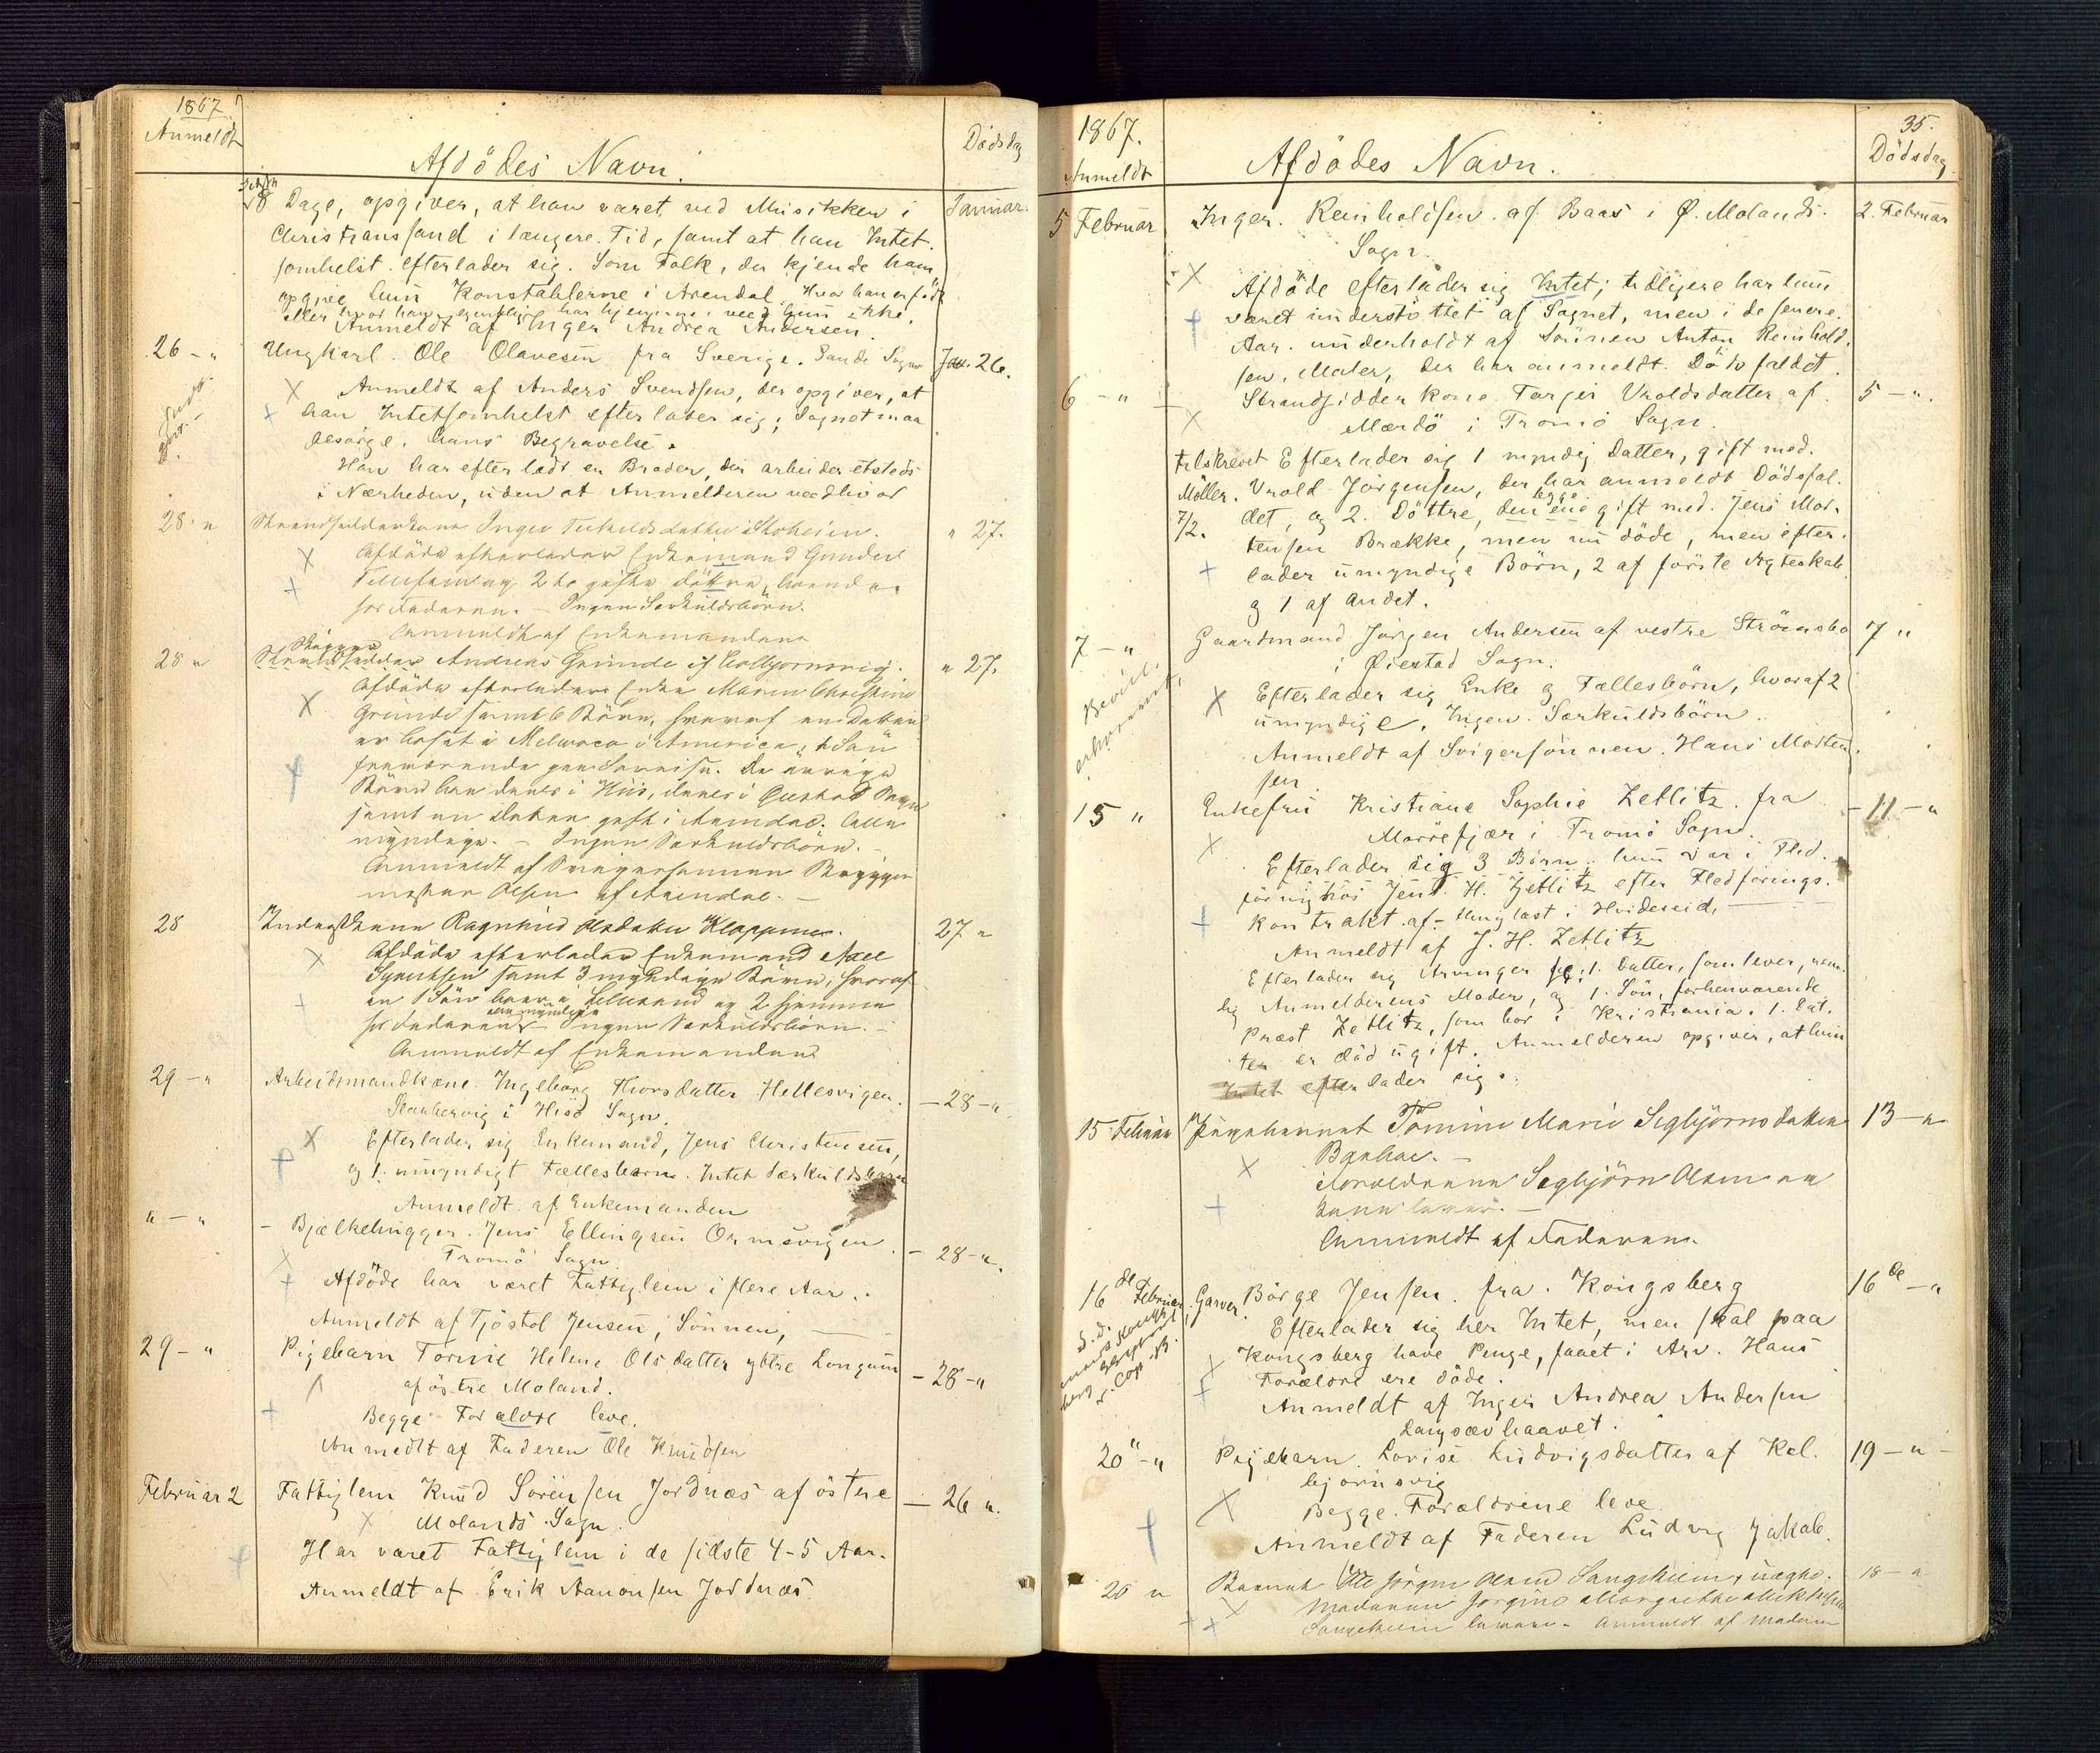 1867
Anmeldt
Afdödes Navn.
Dödsdag
8 Dage, opgiver, at han været ved Musikken i
Januar.
Christianssand i længere Tid, samt at han Intet
somhelst efterlader sig. Som Folk, der kjende ham,
opgive hun Konstablerne i Arendal. Hvor han er født
eller hvor han egentlig har hjemme, veed hun ikke.
Anmeldt af Inger Andrea Andersen.
26 - "
Ungkarl Ole Olavesen fra Sverige. Sande Sogn
Jan. 26.
Anmeldt af Anders Svendsen, der opgiver, at
han Intetsomhelst efterlader sig; Sognet maa
besørge hans Begravelse.
Han har efterladt en Broder, der arbeider etsteds
i Nærheden, uden at Anmelderen veed hvor
28 "
Strandsidderkone Inger
" 27.
Afdöde efterlader Enkemand Gunder
2 de gifte Døttre,
for Faderen. - Ingen Særkuldsbörn.
Anmeldt af Enkemanden
28 "
Skipper
Strandsidder Andreas Grunde af Kolbjornsvig.
" 27.
Afdöde efterlader Enke Maren Christine
Grunde samt 6 Börn, hvoraf en Datter
er bosat i America, 1 Sön
fraværende paa Söreise. De övrige
Börn
samt en Datter gift i Arendal. Alle
myndige. - Ingen Særkuldsbörn. -
Anmeldt af Svigersønnen Brygger
mester Olsen af Arendal. -
28
Inderstkone Ragnhild Olsdatter Kloppene.
27 "
Afdöde efterlader Enkemand Axel
samt 3 myndige Börn, hvoraf
en Sön boer i Lillesand og 2 hjemme
for Faderen - Ingen Særkuldsbörn. -
Anmeldt af Enkemanden
29 - "
Arbeidsmandkone Ingeborg Thorsdatter Hellesvigen
- 28 - "
i Hisö Sogn.
Efterlader sig Enkemand, Jens Christensen,
og 1 umyndigt Fællesbarn. Intet Særkuldsbarn
Anmeldt af Enkemanden
" - "
- Bjælkehugger Jens Ellingsen Ormsvigen
- 28 - ".
Tromö Sogn
Afdöde har været Fattiglem i flere Aar.
Anmeldt af Tjöstol Jensen, Sönnen,
29 - "
Pigebarn Tomine Helene Olsdatter ytre Longum
- 28 - "
af östre Moland.
Begge Forældre leve.
Anmeldt af Faderen Ole Knudsen
Februar 2
Fattiglem Knud Sörensen Jordnæs af östre
- 26 ".
Molands Sogn
Har været Fattiglem i de sidste 4-5 Aar.
Anmeldt af Erik Aanonsen Jordnæs
1867.
Anmeldt
Afdödes Navn.
35.
Dödsdag
5 Februar
Inger Reinholdsen af Baas i Ø. Molands
2. Februar
Sogn.
Afdöde efterlader sig Intet; tidligere har hun
været understöttet af Sognet, men i de senere
Aar underholdt af Sönnen Anton Reinhold-
sen, Maler, der har anmeldt Dödsfaldet.
6 - "
Strandsidderkone Torger Vroldsdatter af
5 - ".
Mærdö i Tromö Sogn.
tilskrevet
Efterlader sig 1 myndig Datter, gift med
Möller.
Vrold Jörgensen, der har anmeldt Dödsfal-
7/2.
det, og 2 Döttre, begge gift med Jens Mor-
tensen Brække, men nu döde, men efter-
lader umyndige Börn, 2 af förste Ægteskab
og 1 af andet.
7 - "
Gaardmand Jörgen Andersen af vestre Strömsbo
7 "
i Øiestad Sogn.
Efterlader sig Enke og Fællesbörn, hvoraf 2
umyndige. Ingen Særkuldsbörn.
Anmeldt af Svigersönnen Hans Morten-
sen.
15 "
Enkefru Kristiane Sophie Zetlitz fra
- 11 - "
Marrefjær i Tromö Sogn.
Efterlader sig 3 Börn. hun var i Fled-
föring hos Jens H. Zetlitz efter Fledførings-
kontrakt af - thinglæst i Hvideseid.
Anmeldt af J. H. Zetlitz
Efterlader sig Arvinger 1 Datter, som lever, nem-
lig Anmelderens Moder, og 1 Sön, forhenværende
Præst Zetlitz, som bor i Kristiania. 1 Dat-
ter er död ugift. Anmelderen opgiver, at hun
Intet efterlader sig.
15 Februar
Pigebarnet Tomine Marie Segbjörnsdatter
13 - "
Forældrene Segbjörn Olsen
Anmeldt af Faderen.
16de Februar
Garver Börge Jensen fra Kongsberg
16de - "
Efterlader sig her Intet, men skal paa
Kongsberg have Penge, faaet i Arv. Hans
Forældre ere döde.
Anmeldt af Inger Andrea Andersen
Langsævhaavet.
20 - "
Pigebarn Lovise Ludvigsdatter af Kol-
19 - "
björnsvig
Begge Forældrene leve.
Anmeldt af Faderen Ludvig Jakob.
20 "
Barnet Ole Jörgen Olsen Langekiein, uægte.
18 - "
Moderen Jörgine Margrethe
lever. - Anmeldt af Moderen